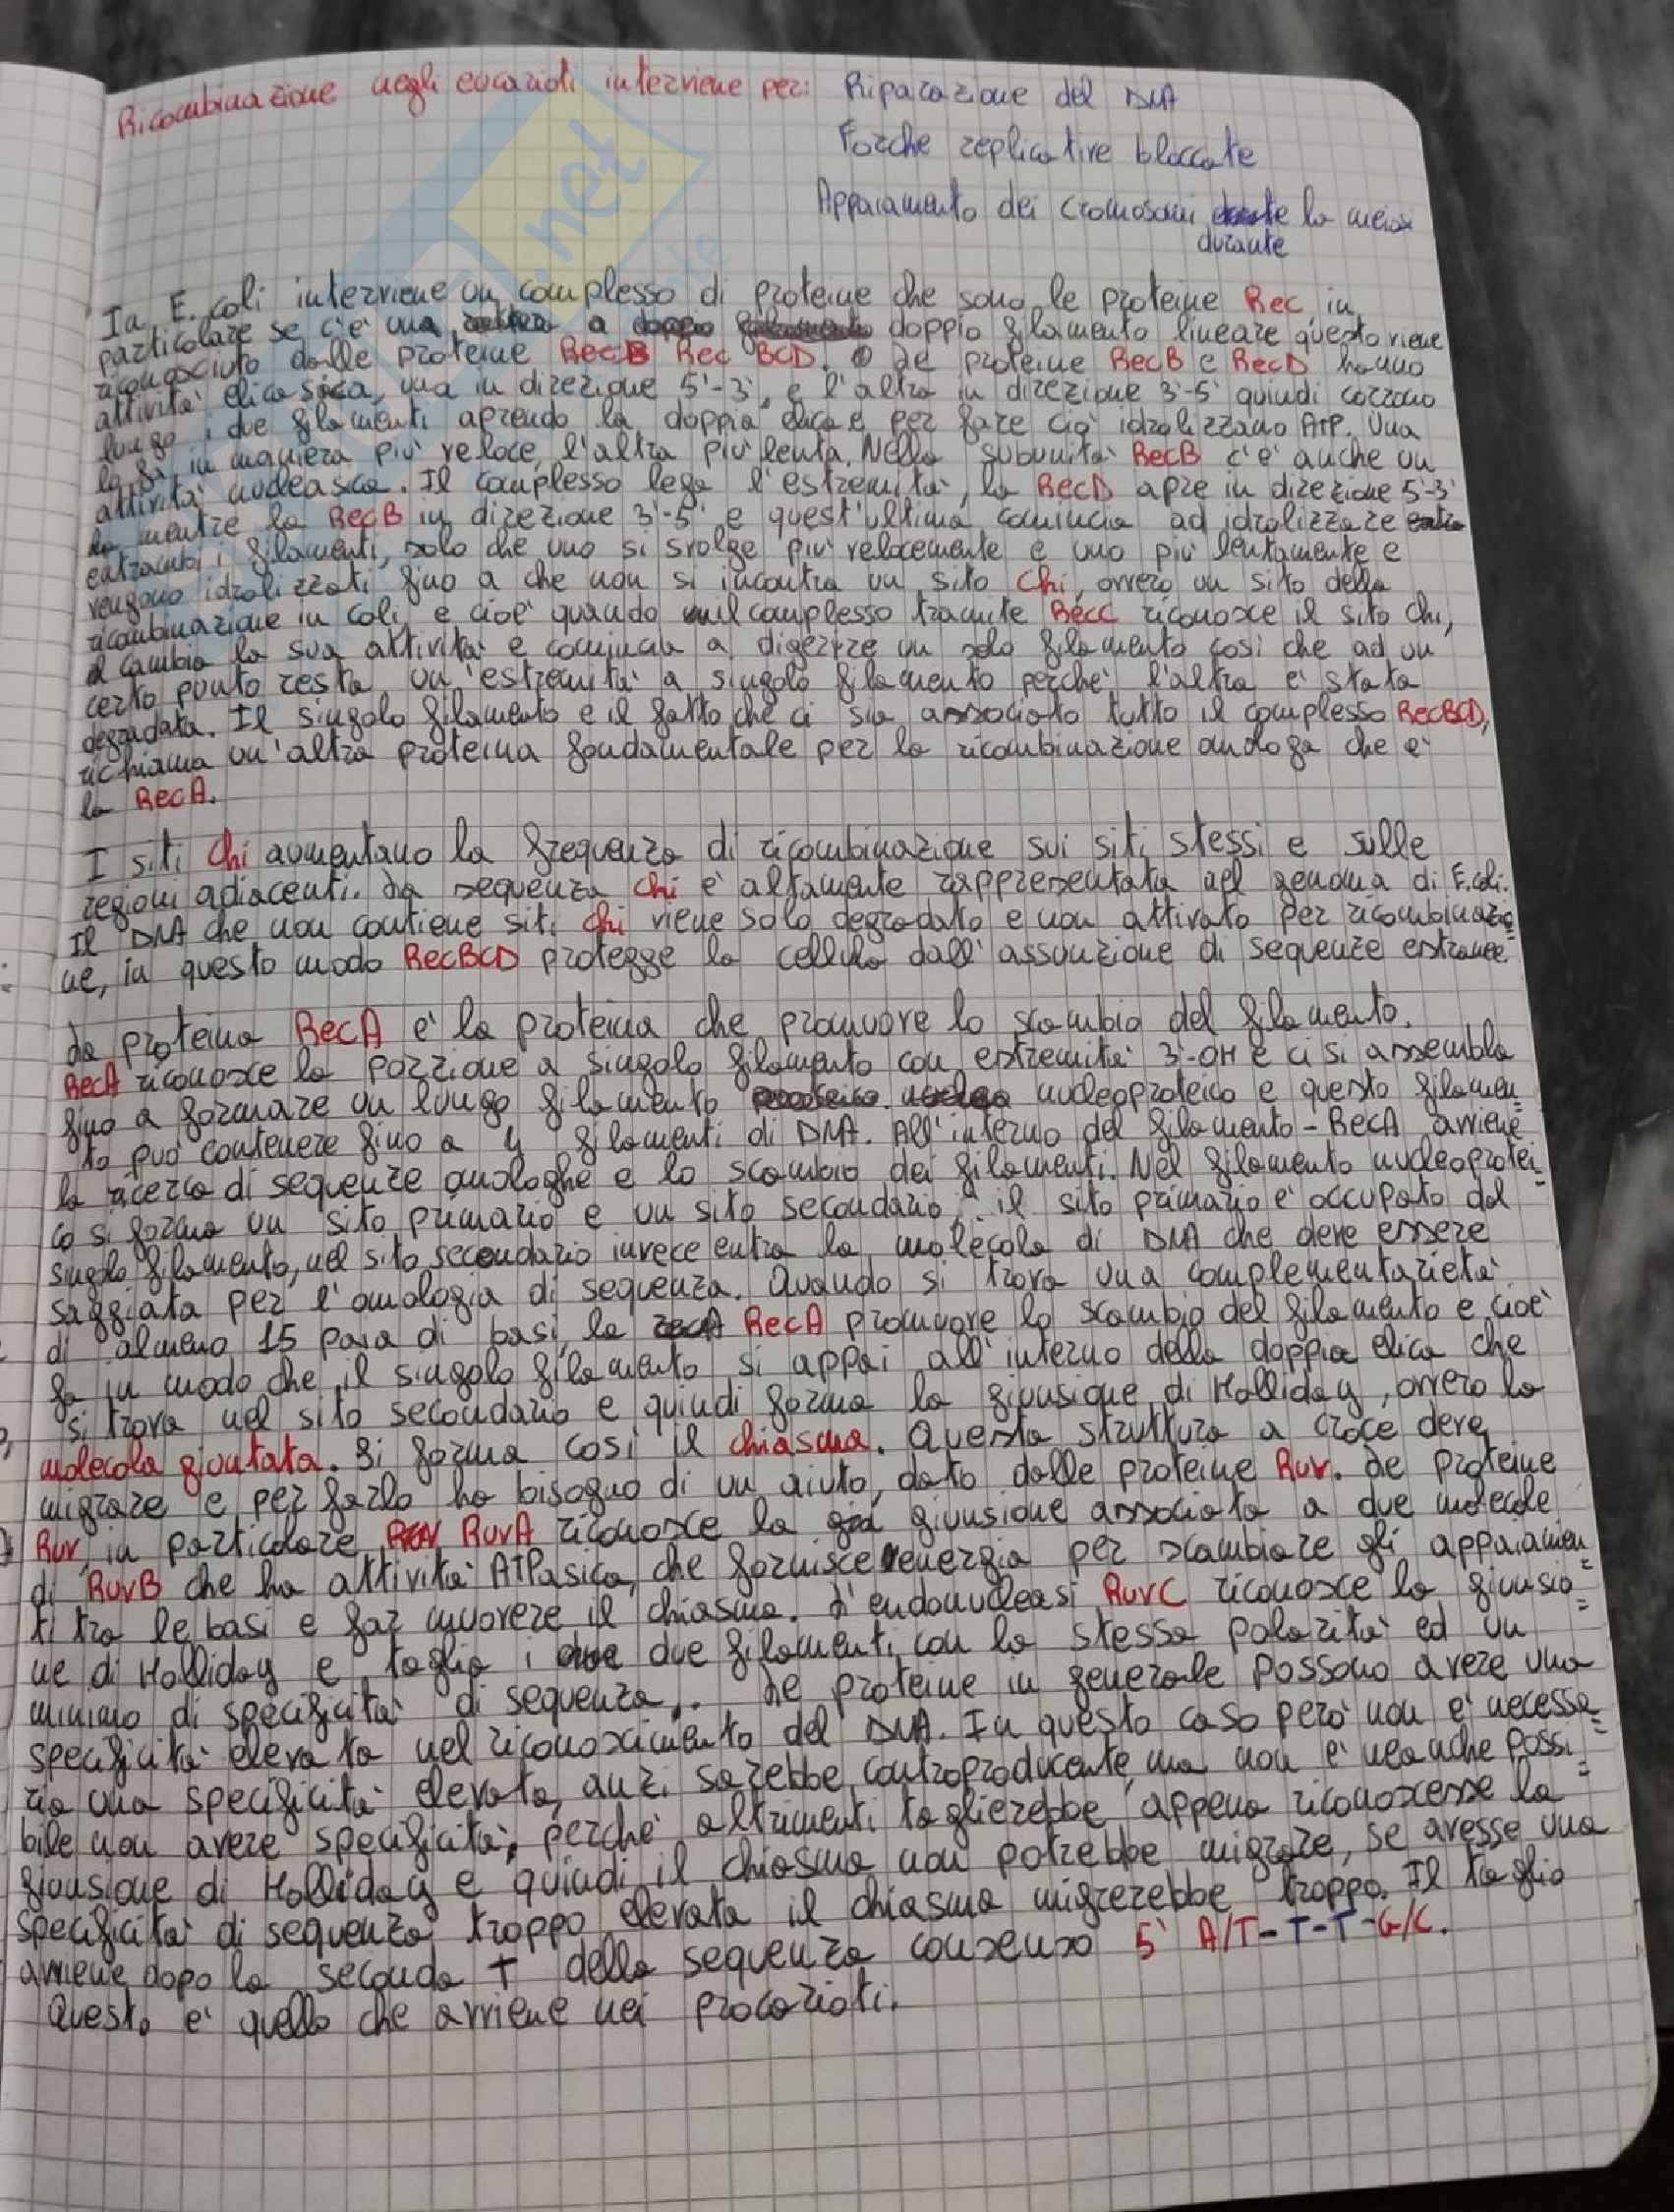 Ricombinazione negli eucarioti interviene per: Riparazione del DNA
Forche replicative bloccate
Appaiamento dei cromosomi la meiosi
durante
In E. coli interviene un complesso di proteine che sono le proteine Rec, in
particolare se c'è una a doppio filamento lineare questo viene
riconosciuto dalle proteine RecB Rec BCD. Le proteine RecB e RecD hanno
attività elicasica, una in direzione 5'-3', e l'altra in direzione 3'-5' quindi corrono
lungo i due filamenti aprendo la doppia elica e per fare ciò idrolizzano ATP. Una
lo fa in maniera più veloce, l'altra più lenta. Nella subunità RecB c'è anche un
attività nucleasica. Il complesso lega l'estremità, la RecD apre in direzione 5'-3'
mentre la RecB in direzione 3'-5' e quest'ultima comincia ad idrolizzare
entrambi i filamenti, solo che uno si svolge più velocemente e uno più lentamente e
vengono idrolizzati fino a che non si incontra un sito Chi, ovvero un sito della
ricombinazione in coli, e cioè quando il complesso tramite RecC riconosce il sito chi,
cambia la sua attività e comincia a digerire un solo filamento così che ad un
certo punto resta un'estremità a singolo filamento perchè l'altra è stata
degradata. Il singolo filamento e il fatto che ci sia associato tutto il complesso RecBCD,
richiama un'altra proteina fondamentale per la ricombinazione omologa che è
la RecA.
I siti Chi aumentano la frequenza di ricombinazione sui siti stessi e sulle
regioni adiacenti. La sequenza chi è altamente rappresentata nel genoma di E.coli.
Il DNA che non contiene siti chi viene solo degradato e non attivato per ricombinazio=
ne, in questo modo RecBCD protegge la cellula dall'assunzione di sequenze estranee.
La proteina RecA è la proteina che promuove lo scambio del filamento.
RecA riconosce la porzione a singolo filamento con estremità 3'-OH e ci si assembla
fino a formare un lungo filamento nucleoproteico e questo filamen=
to può contenere fino a 4 filamenti di DNA. All'interno del filamento-RecA avviene
la ricerca di sequenze omologhe e lo scambio dei filamenti. Nel filamento nucleoprotei=
co si forma un sito primario e un sito secondario: il sito primario è occupato dal
singolo filamento, nel sito secondario invece entra la molecola di DNA che deve essere
saggiata per l'omologia di sequenza. Quando si trova una complementarietà
di almeno 15 paia di basi, la RecA promuove lo scambio del filamento e cioè
fa in modo che il singolo filamento si appai all'interno della doppia elica che
si trova nel sito secondario e quindi forma la giunsione di Holliday, ovvero la
molecola giuntata. Si forma così il chiasma. Questa struttura a croce deve
migrare e per farlo ha bisogno di un aiuto, dato dalle proteine Ruv. Le proteine
Ruv, in particolare RuvA riconosce la giunsione associata a due molecole
di RuvB che ha attività ATPasica, che fornisce l'energia per scambiare gli appaiamen=
ti tra le basi e far muovere il chiasma. L'endonucleasi RuvC riconosce la giunsio=
ne di Holliday e taglia i due filamenti con la stessa polarità ed un
minimo di specificità di sequenza. Le proteine in generale possono avere una
specificità elevata nel riconoscimento del DNA. In questo caso però non è necessa=
ria una specificità elevata, anzi sarebbe controproducente, ma non è neanche possi=
bile non avere specificità, perchè altrimenti taglierebbe appena riconoscesse la
giunsione di Holliday e quindi il chiasma non potrebbe migrare, se avesse una
specificità di sequenza troppo elevata il chiasma migrerebbe troppo. Il taglio
avviene dopo la seconda T della sequenza consenso 5' A/T-T-T-G/C.
Questo è quello che avviene nei procarioti.